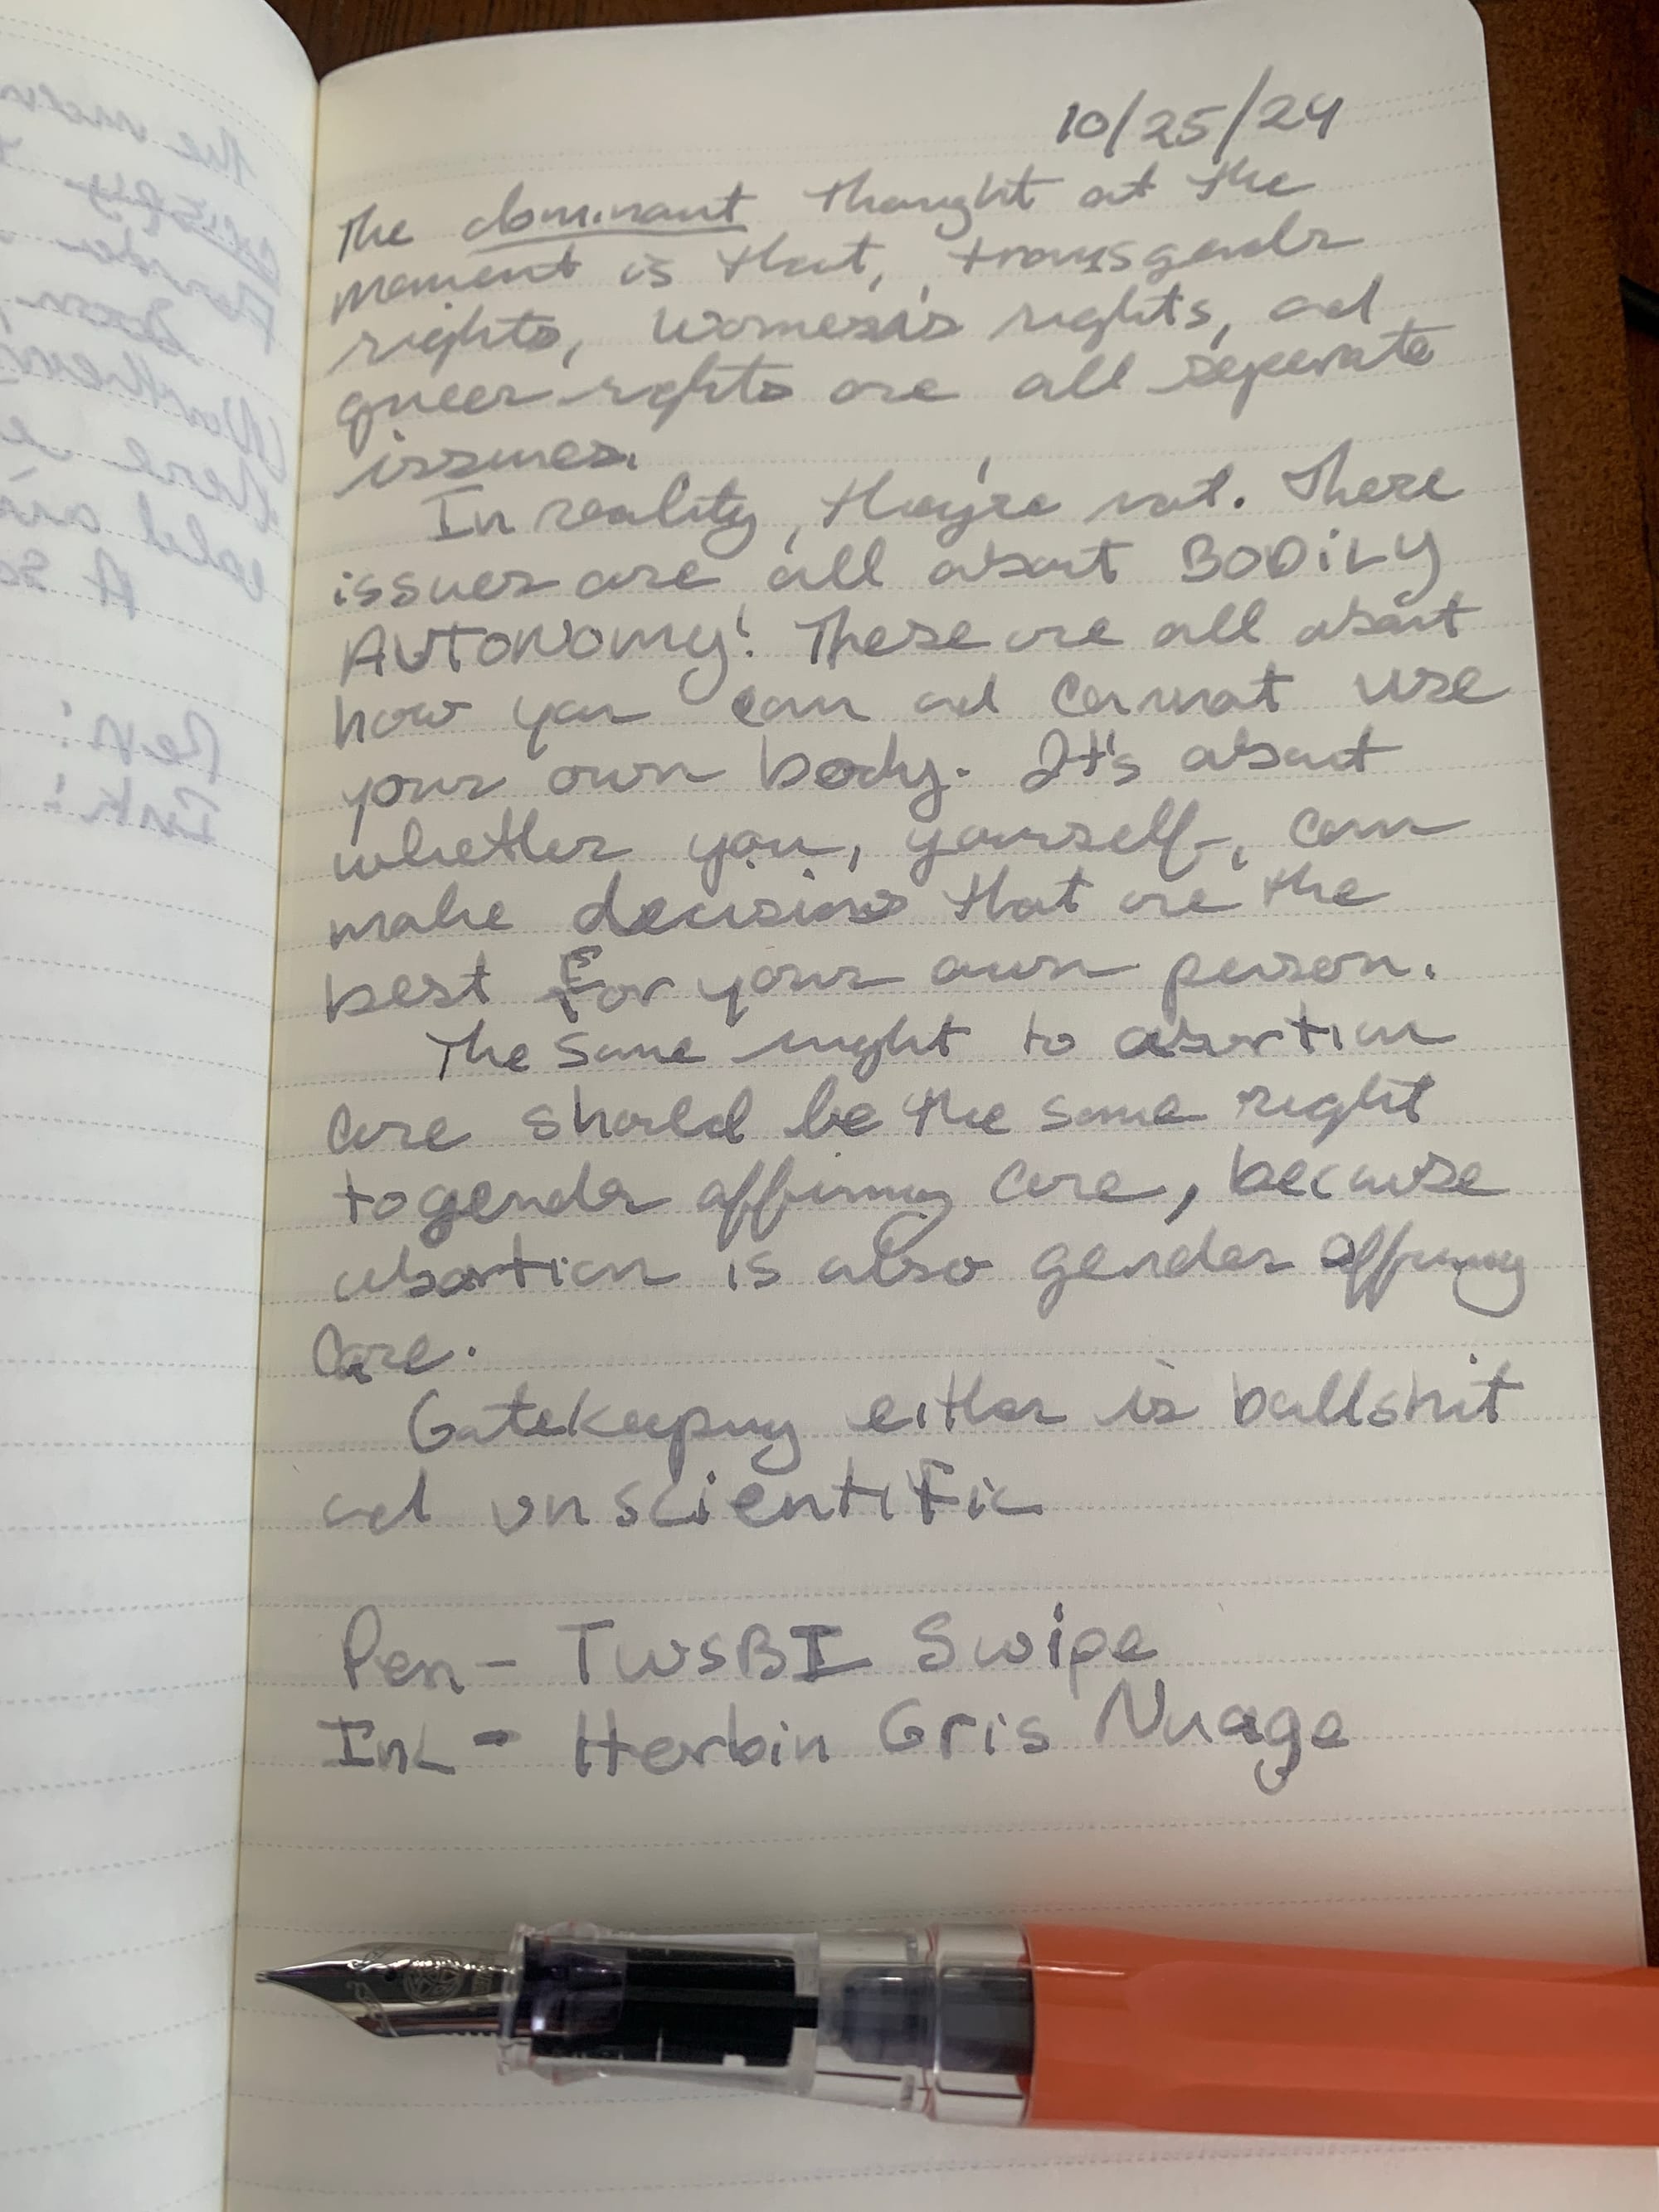 10/25/24
The dominant thought at the
moment is that, transgender
rights, women's rights, and
queer rights are all seperate
issues.
In reality, they're not. These
issues are all about BODILY
AUTONOMY! These are all about
how you can and cannot use
your own body. It's about
whether you, yourself, can
make decisions that are the
best for your own person.
The same right to abortion
care should be the same right
to gender affirming care, because
abortion is also gender affirming
care.
Gatekeeping either is bullshit
and unscientific
Pen - TWSBI Swipe
Ink - Herbin Gris Nuage